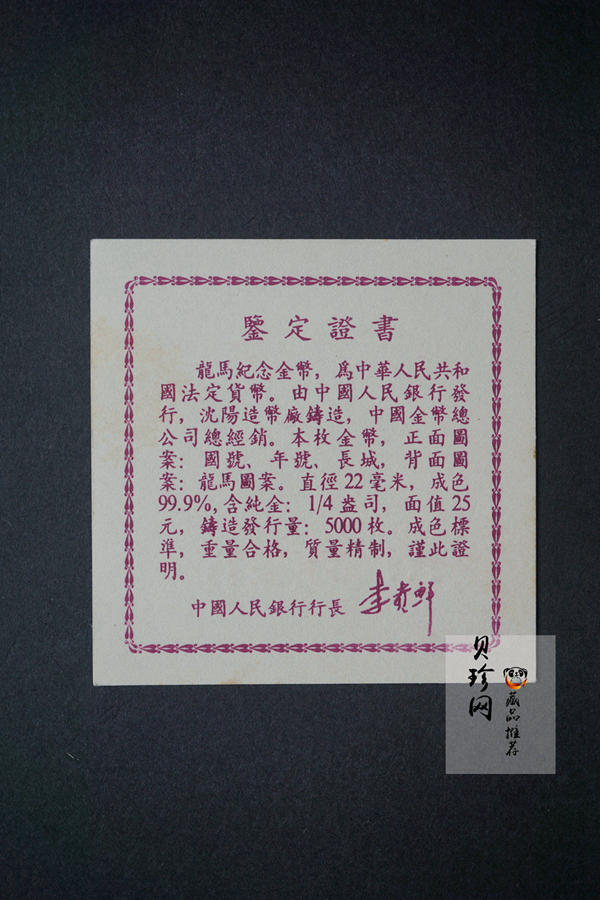 鑒定證書
龍馬紀念金幣，爲中華人民共和
國法定貨幣。由中國人民銀行發
行，沈陽造幣廠鑄造，中國金幣總
公司總經銷。本枚金幣，正面圖
案：國號、年號、長城，背面圖
案：龍馬圖案。直徑22毫米，成色
99.9%，含純金：1/4盎司，面值25
元，鑄造發行量：5000枚。成色標
準，重量合格，質量精制，謹此證
明。
中國人民銀行行長 李貴鮮
贝珍网
藏品推荐